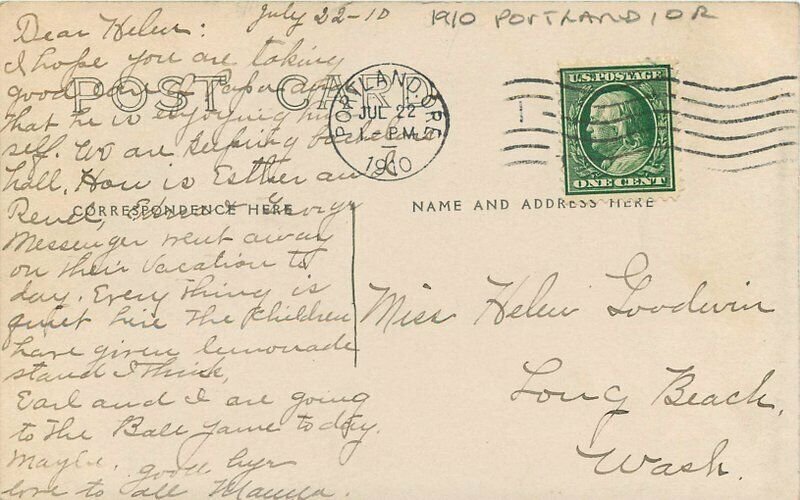 July 22-10
1910 PORTLAND, OR
Dear Helen:
I hope you are taking
good care of Papa and
that he is enjoying him
self. We are keeping bachelor
hall. How is Esther and
Edna & George
Messenger went away
on their vacation to
day. Every thing is
quiet here The children
have given lemonade
stand I think.
Earl and I are going
to the Ball game to day.
Maybe. good bye
love to all Mamma.
POST CARD
CORRESPONDENCE HERE
NAME AND ADDRESS HERE
PORTLAND, ORE
JUL 22
1 - PM
1910
U.S. POSTAGE
ONE CENT
Miss Helen Goodwin
Long Beach,
Wash.